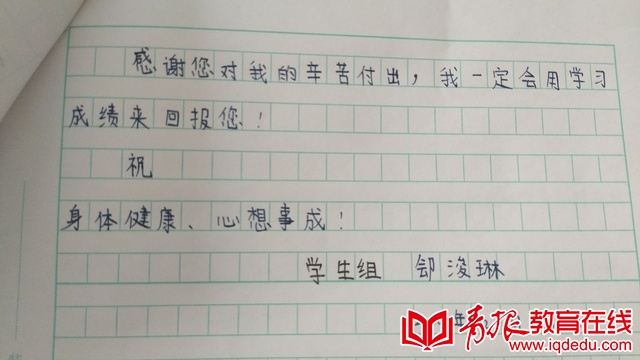 感谢您对我的辛苦付出，我一定会用学习
成绩来回报您！
祝
身体健康、心想事成！
学生组 郐浚琳
年
青报教育在线
www.iqdedu.com